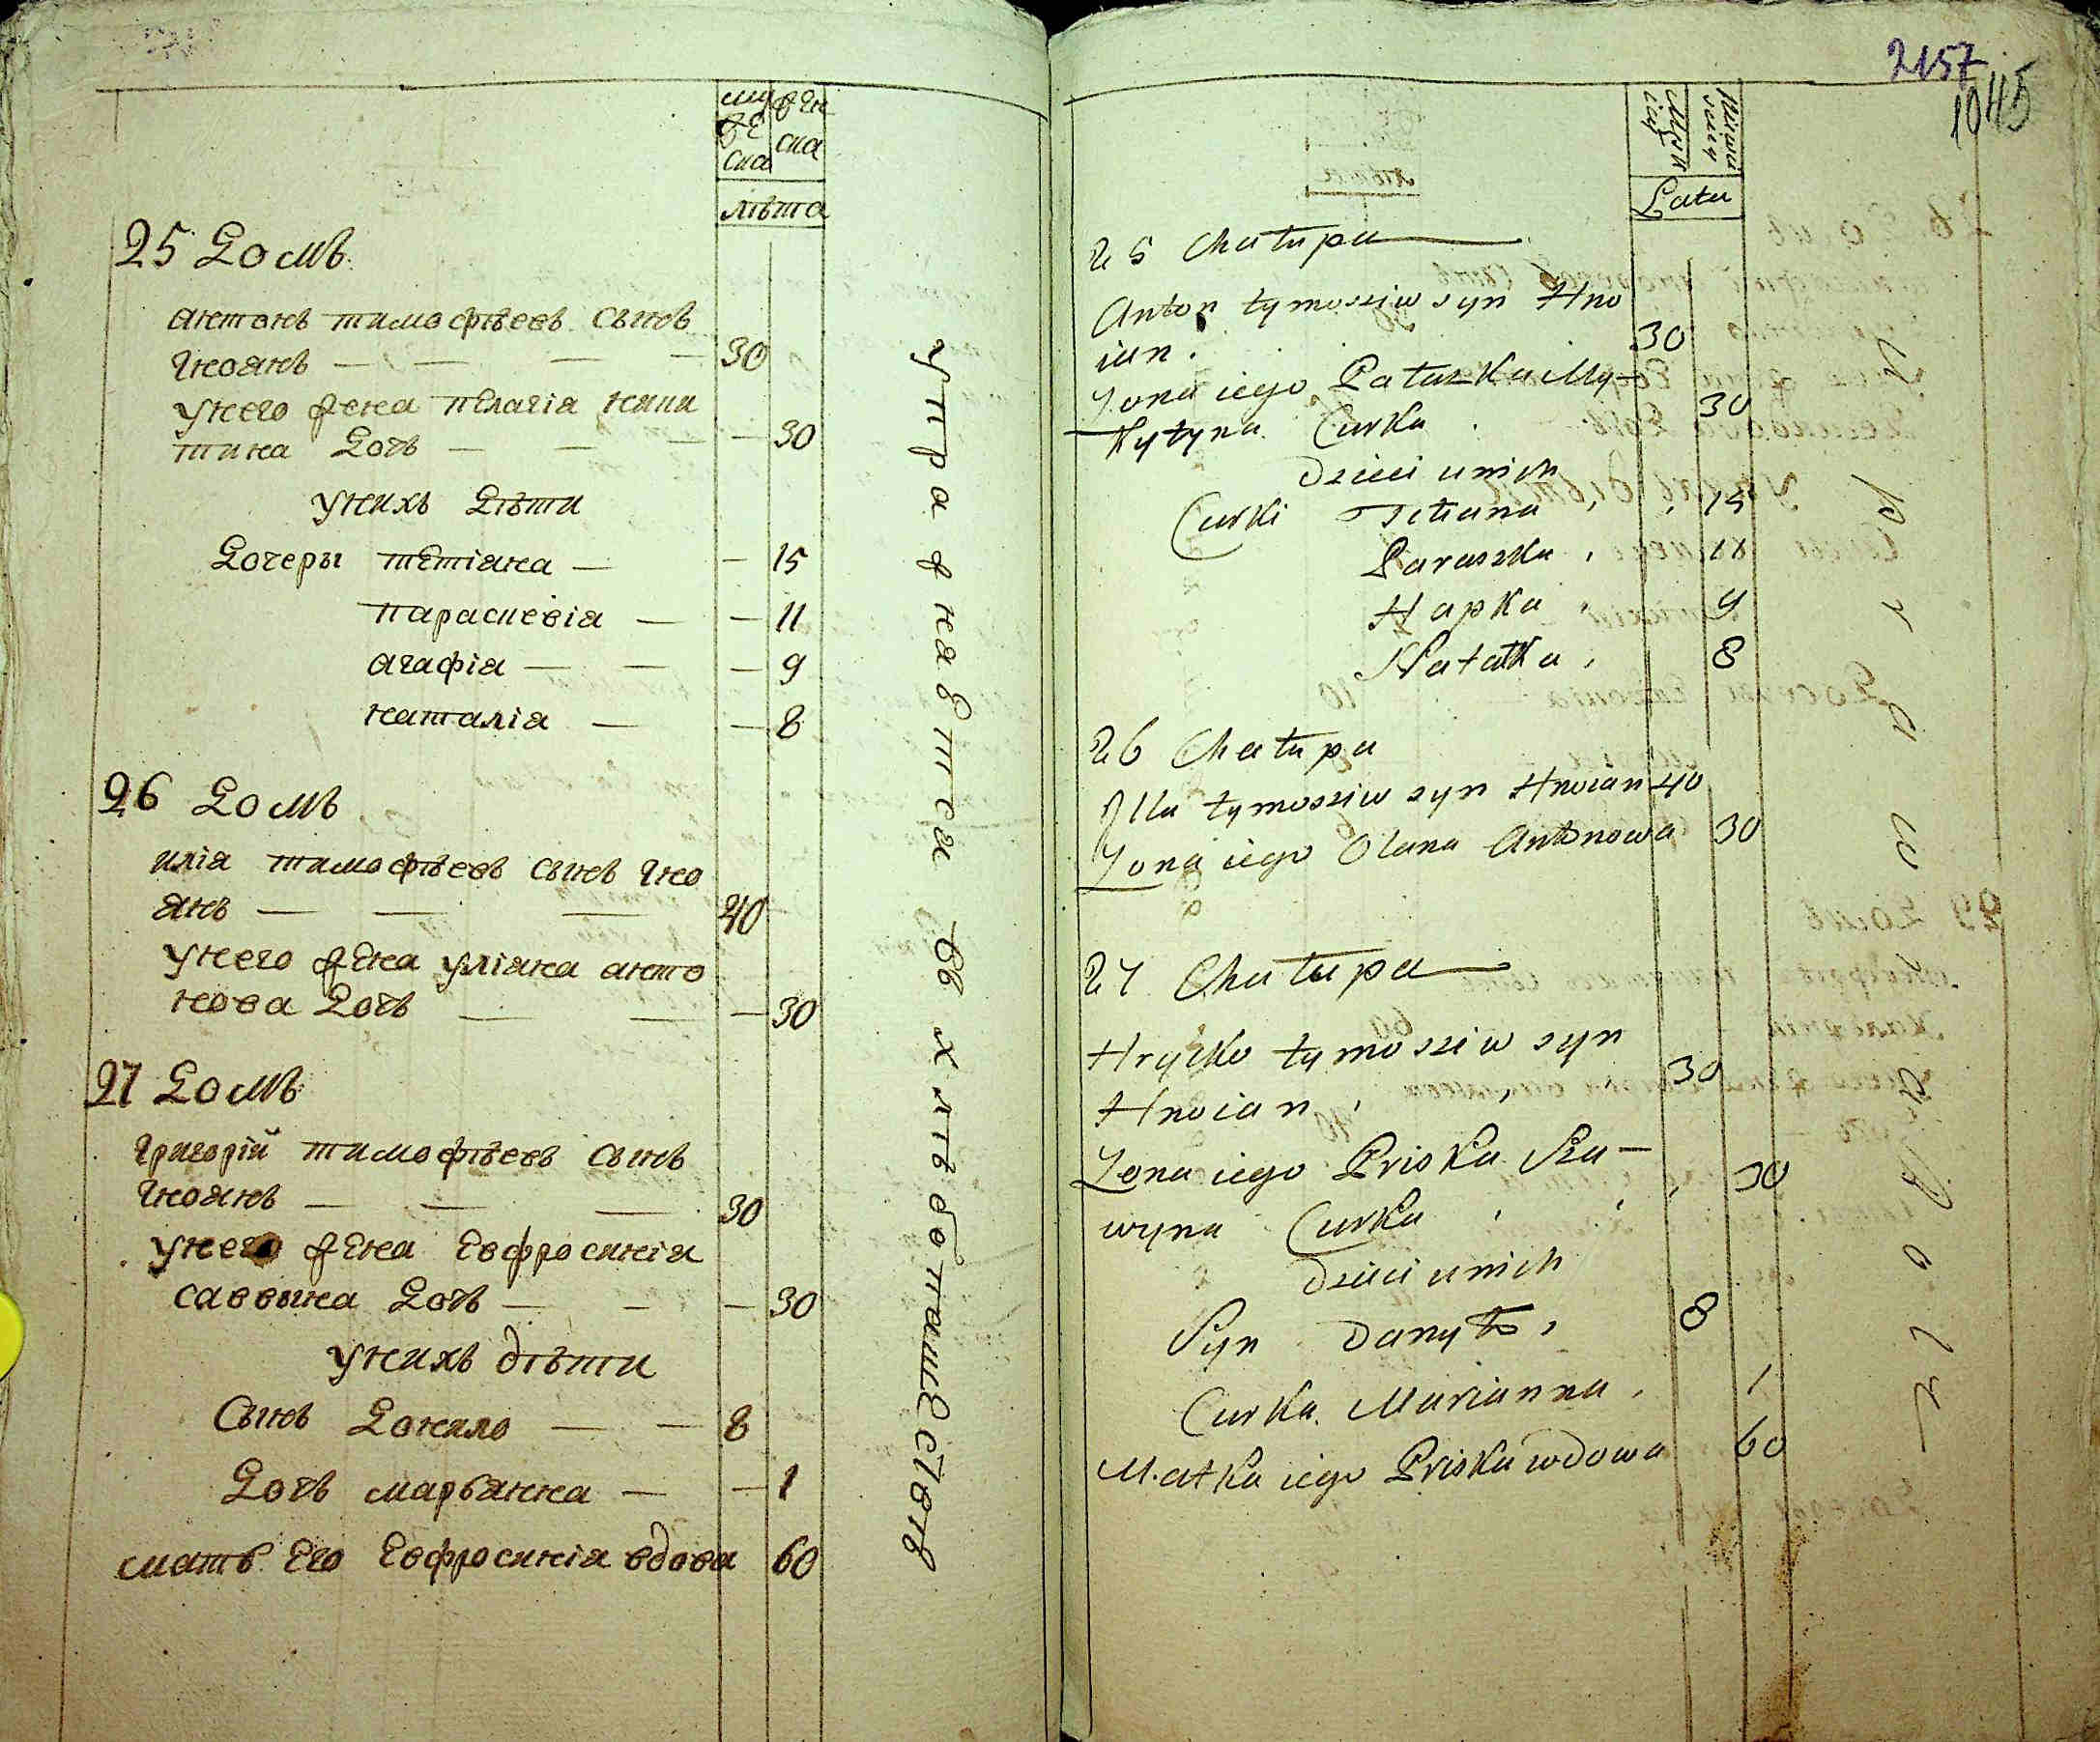 муже
ска
жен
ска
лѣта
25 Домъ
антонъ тимофѣевъ сынъ
гноянъ — — — — 30
у него жена пелагія ники
тина дочь — — — — 30
у нихъ дѣти
дочеры тетіана — — 15
параскевія — — 11
агафія — — — 9
наталія — — 8
26 Домъ
илія тимофѣевъ сынъ гно
янъ — — — 40
у него жена уліяна анто
нова дочь — — — 30
27 Домъ
григорій тимофѣевъ сынъ
гноянъ — — — 30
у него жена евфросинія
саввина дочь — — — 30
у нихъ дѣти
сынъ данило — — 8
дочь марьянна — — 1
мать его евфросинія вдова 60
упражняется въ хлѣбопашествѣ
2157
1045
Lata
25 Chałupa
Anton tymosziw syn Hno
ian. 30
Zona iego Pałazka My-
kytyna Curka . 30
Dzieci unich
Curki Tetiana , , 15
Paraszka , 11
Hapka , 9
Natałka , 8
26 Chałupa
Illa tymosziw syn Hnoian 40
Zona iego Olana Antonowa 30
27 Chałupa
Hrycko tymosziw syn
Hnoian , , , 30
Zona iego Priska Sza-
wyna Curka , , , 30
Dzieci unich
Syn Danyło , 8
Curka Marianna , 1
Matka iego Priska wdowa 60